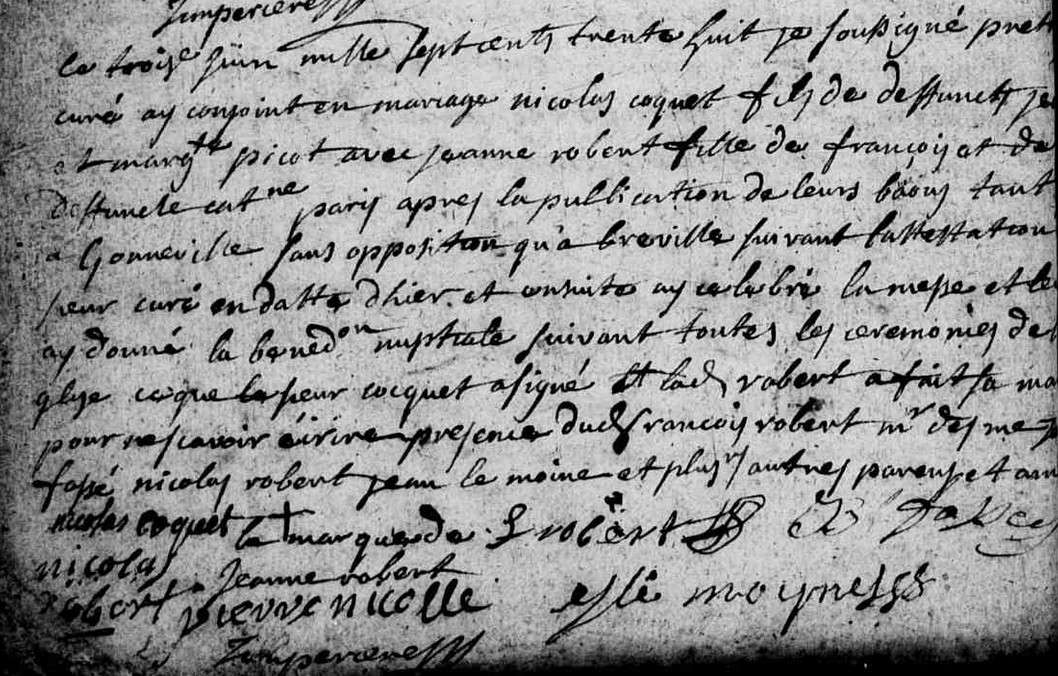 le trois juin mille sept cents trente huit je soussigné
curé ay conjoint en mariage nicolas coquet fils de deffuncts
et margte picot avec jeanne robert fille de françois et de
deffuncte catne paris apres la publication de leurs bans tant
a Gonneville sans opposition qu'a breville suivant lattestation
sieur curé en datte dhier et ensuite ay celebré la messe et
ay donné la benedon nuptiale suivant toutes les ceremonies de
glise ce que le sieur cocquet a signé et lad robert a fait sa
pour ne scavoir écrire presence dud françois robert mr des
fossé nicolas robert jean le moine et plusrs autres parens et
nicolas coquet la marque de f robert
nicolas jeanne robert
robert pierre nicolle moyne